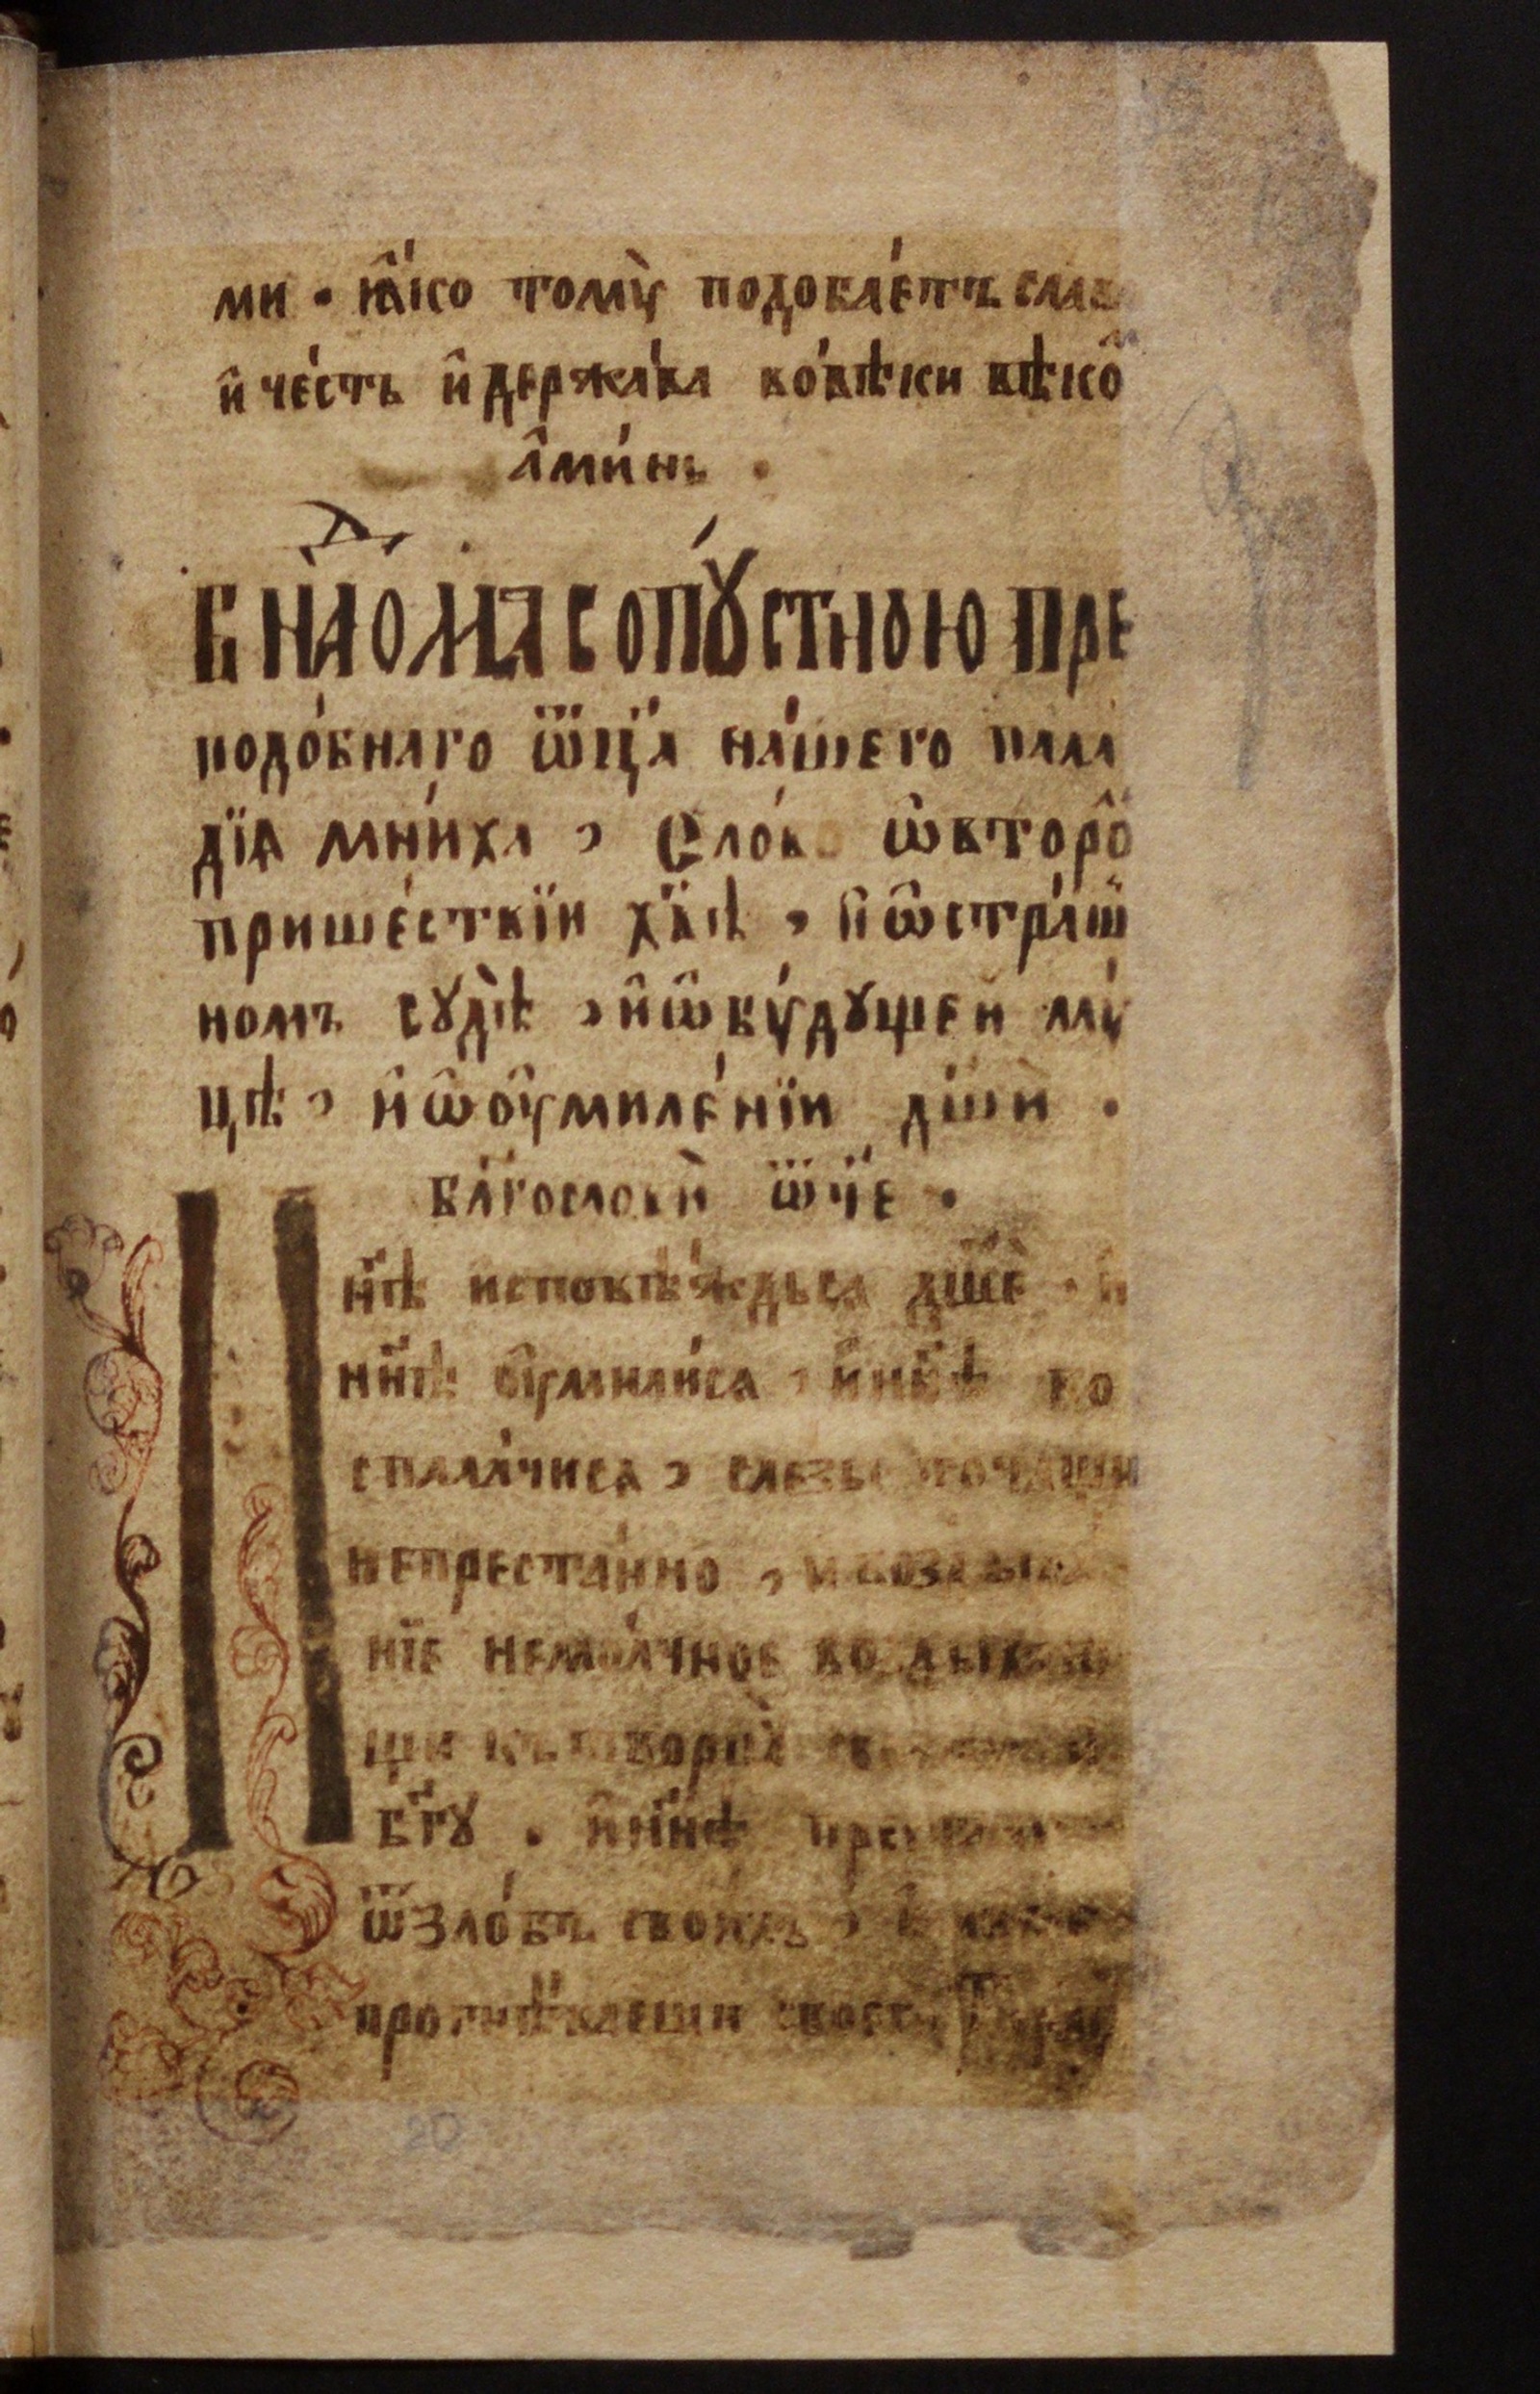 ми · ꙗ҆́ко томꙋ̀ подоба́етъ слав
и҆ че́сть и҆ держа́ва во́вѣки вѣко̑
а҆ми́нь .
В нⷣѧ̑ ѻ мѧсопꙋ́стнꙋю пре
подо́бнаго ѿц҃а на́шего пала
дїѧ мни́ха , Сло́во ѡ҆второ̑
прише́ствїи хв҃ѣ , и҆ ѡ҆стра́ш
номъ сꙋдѣ̀ , и҆ ѡ҆бꙋ́дꙋщей мꙋ́
цѣ , и҆ ѡ҆оу҆миле́нїи дш҃ѝ .
Бл҃гословѝ ѿч҃е .
Н
н҃ѣ исповѣ́ждьсѧ дш҃ѐ · и
нн҃ѣ оу҆мили́сѧ , и҆ нн҃ѣ во
спла́чисѧ , слезы точащи
непреста́нно , и воздыха
нїе немо́лчное воздыха
щи къ творцꙋ̀
бг҃ꙋ . и҆ нн҃ѣ
ѿ ѕло́бъ свои́хъ ,
прогнѣ́ваеши своего
20